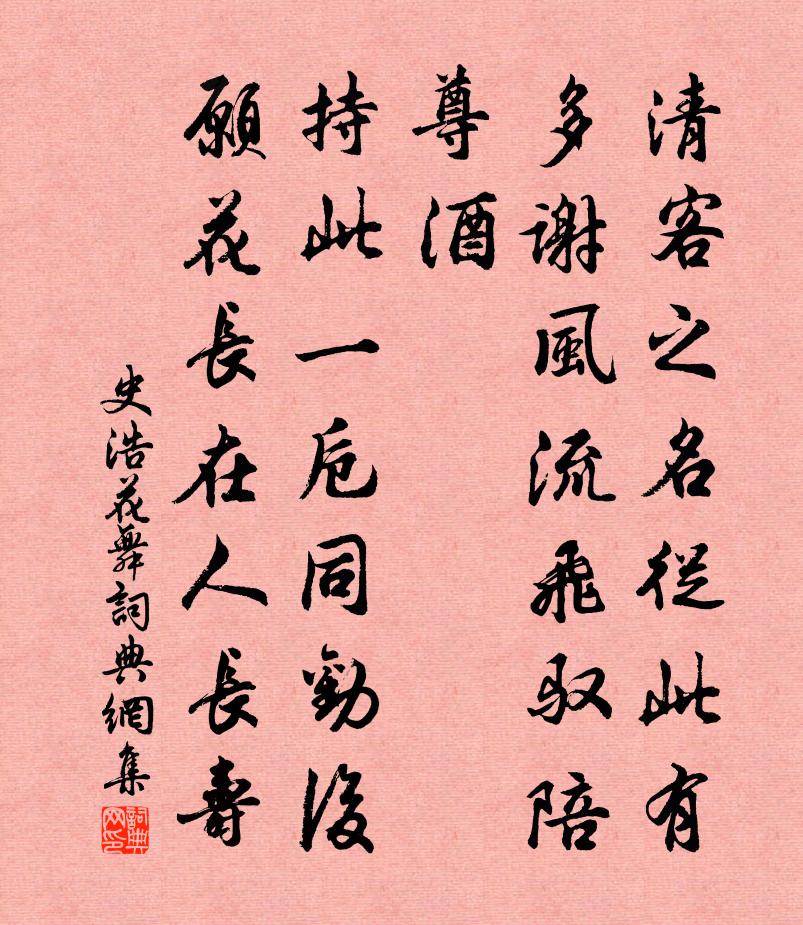 清客之名從此有
多謝風流飛馭陪
尊酒
持此一卮同勸後
願花長在人長壽
史浩花舞詞典網集
詞典网印